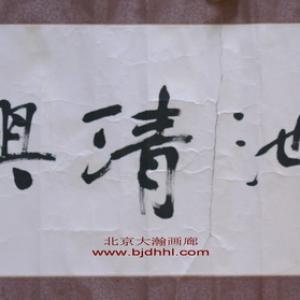 池清
北京大瀚画廊
www.bjdhhl.com